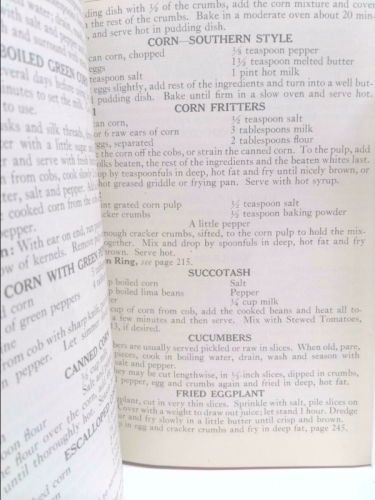 water; don
with salt and pepper
and surround
BOILED GREEN CO
several days before
minutes to set the milk
to use.
husks and silk threads,
er with a little sugar
and serve with
from cobs, cook slowly
ter, salt and pepper.
cooked corn from the
pepper.
n: With ear on end,
ow of kernels. Remove
CORN WITH GREEN PE
d corn
of green peppers
from cob with sharp knife
pepper. Let simmer
CANNED CORN
Salt
the
our flour
he flour over the
until thoroughly hot.
ESCALLOPED
ked corn
pudding dish with ½ of the crumbs, add the corn mixture and cover
h the rest of the crumbs. Bake in a moderate oven about 20 min-
, and serve hot in pudding dish.
CORN—SOUTHERN STYLE
can corn, chopped ⅛ teaspoon pepper
eggs 1½ teaspoon melted butter
teaspoon salt 1 pint hot milk
eggs slightly, add rest of the ingredients and turn into a well but-
l pudding dish. Bake until firm in a slow oven and serve hot.
CORN FRITTERS
an corn, ½ teaspoon salt
or 6 raw ears of corn 3 tablespoons milk
eggs, separated 2 tablespoons flour
the corn off the cobs, or strain the canned corn. To the pulp, add
olks beaten, the rest of the ingredients and the beaten whites last.
by teaspoonfuls in deep, hot fat and fry until nicely brown, or
hot greased griddle or frying pan. Serve with hot syrup.
nt grated corn pulp ½ teaspoon salt
cracker crumbs ½ teaspoon baking powder
A little pepper
ough cracker crumbs, sifted, to the corn pulp to hold the mix-
ogether. Mix and drop by spoonfuls in deep, hot fat and fry
brown. Serve hot.
rn Ring, see page 215.
SUCCOTASH
p boiled corn Salt
p boiled lima beans Pepper
er ¼ cup milk
cup of corn from cob, add the cooked beans and heat all to-
a few minutes and then serve. Mix with Stewed Tomatoes,
13, if desired.
CUCUMBERS
bers are usually served pickled or raw in slices. When old, pare,
pieces, cook in boiling water, drain, wash and season with
salt and pepper.
hey may be cut lengthwise, in ⅓-inch slices, dipped in crumbs,
l pepper, egg and crumbs again and fried in deep, hot fat.
FRIED EGGPLANT
plant, cut in very thin slices. Sprinkle with salt, pile slices on
Cover with a weight to draw out juice; let stand 1 hour. Dredge
ur and fry slowly in a little butter until crisp and brown.
p in egg and cracker crumbs and fry in deep, page 245.